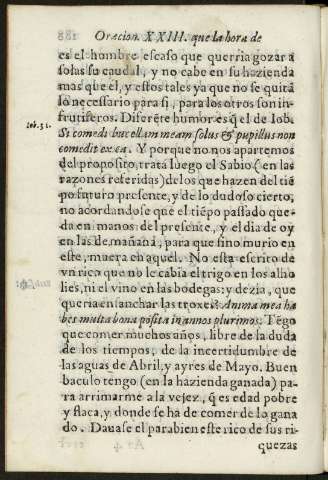 Oracion XXIII. que la hora de
es el hombre escaso que querria gozar a
solas su caudal, y no cabe en su hazienda
mas que el, y estos tales ya que no se quitã
lo necessario para si, para los otros son in-
frutiferos. Diferẽte humor es q̃ el de Iob.
Iob. 31.
Si comedi buccellam meam solus & pupillus non
comedit ex ea. Y porque no nos apartemos
del proposito, trata luego el Sabio (en las
razones referidas) de los que hazen del tiẽ
po futuro presente, y de lo dudoso cierto,
no acordandose que el tiẽpo passado que-
da en manos del presente, y el dia de oy
en las de mañana, para que sino murio en
este, muera en aquel. No esta escrito de
vn rico que no le cabia el trigo en los alho
lies, ni el vino en las bodegas: y dezia, que
queria ensanchar las troxes? Anima mea ha
bes multa bona posita in annos plurimos: Tẽgo
que comer muchos años, libre de la duda
de los tiempos, de la incertidumbre de
las aguas de Abril, y ayres de Mayo. Buen
baculo tengo (en la hazienda ganada) pa-
ra arrimarme a la vejez, q̃ es edad pobre
y flaca, y donde se ha de comer de lo gana
do. Dauase el parabien este rico de sus ri
quezas